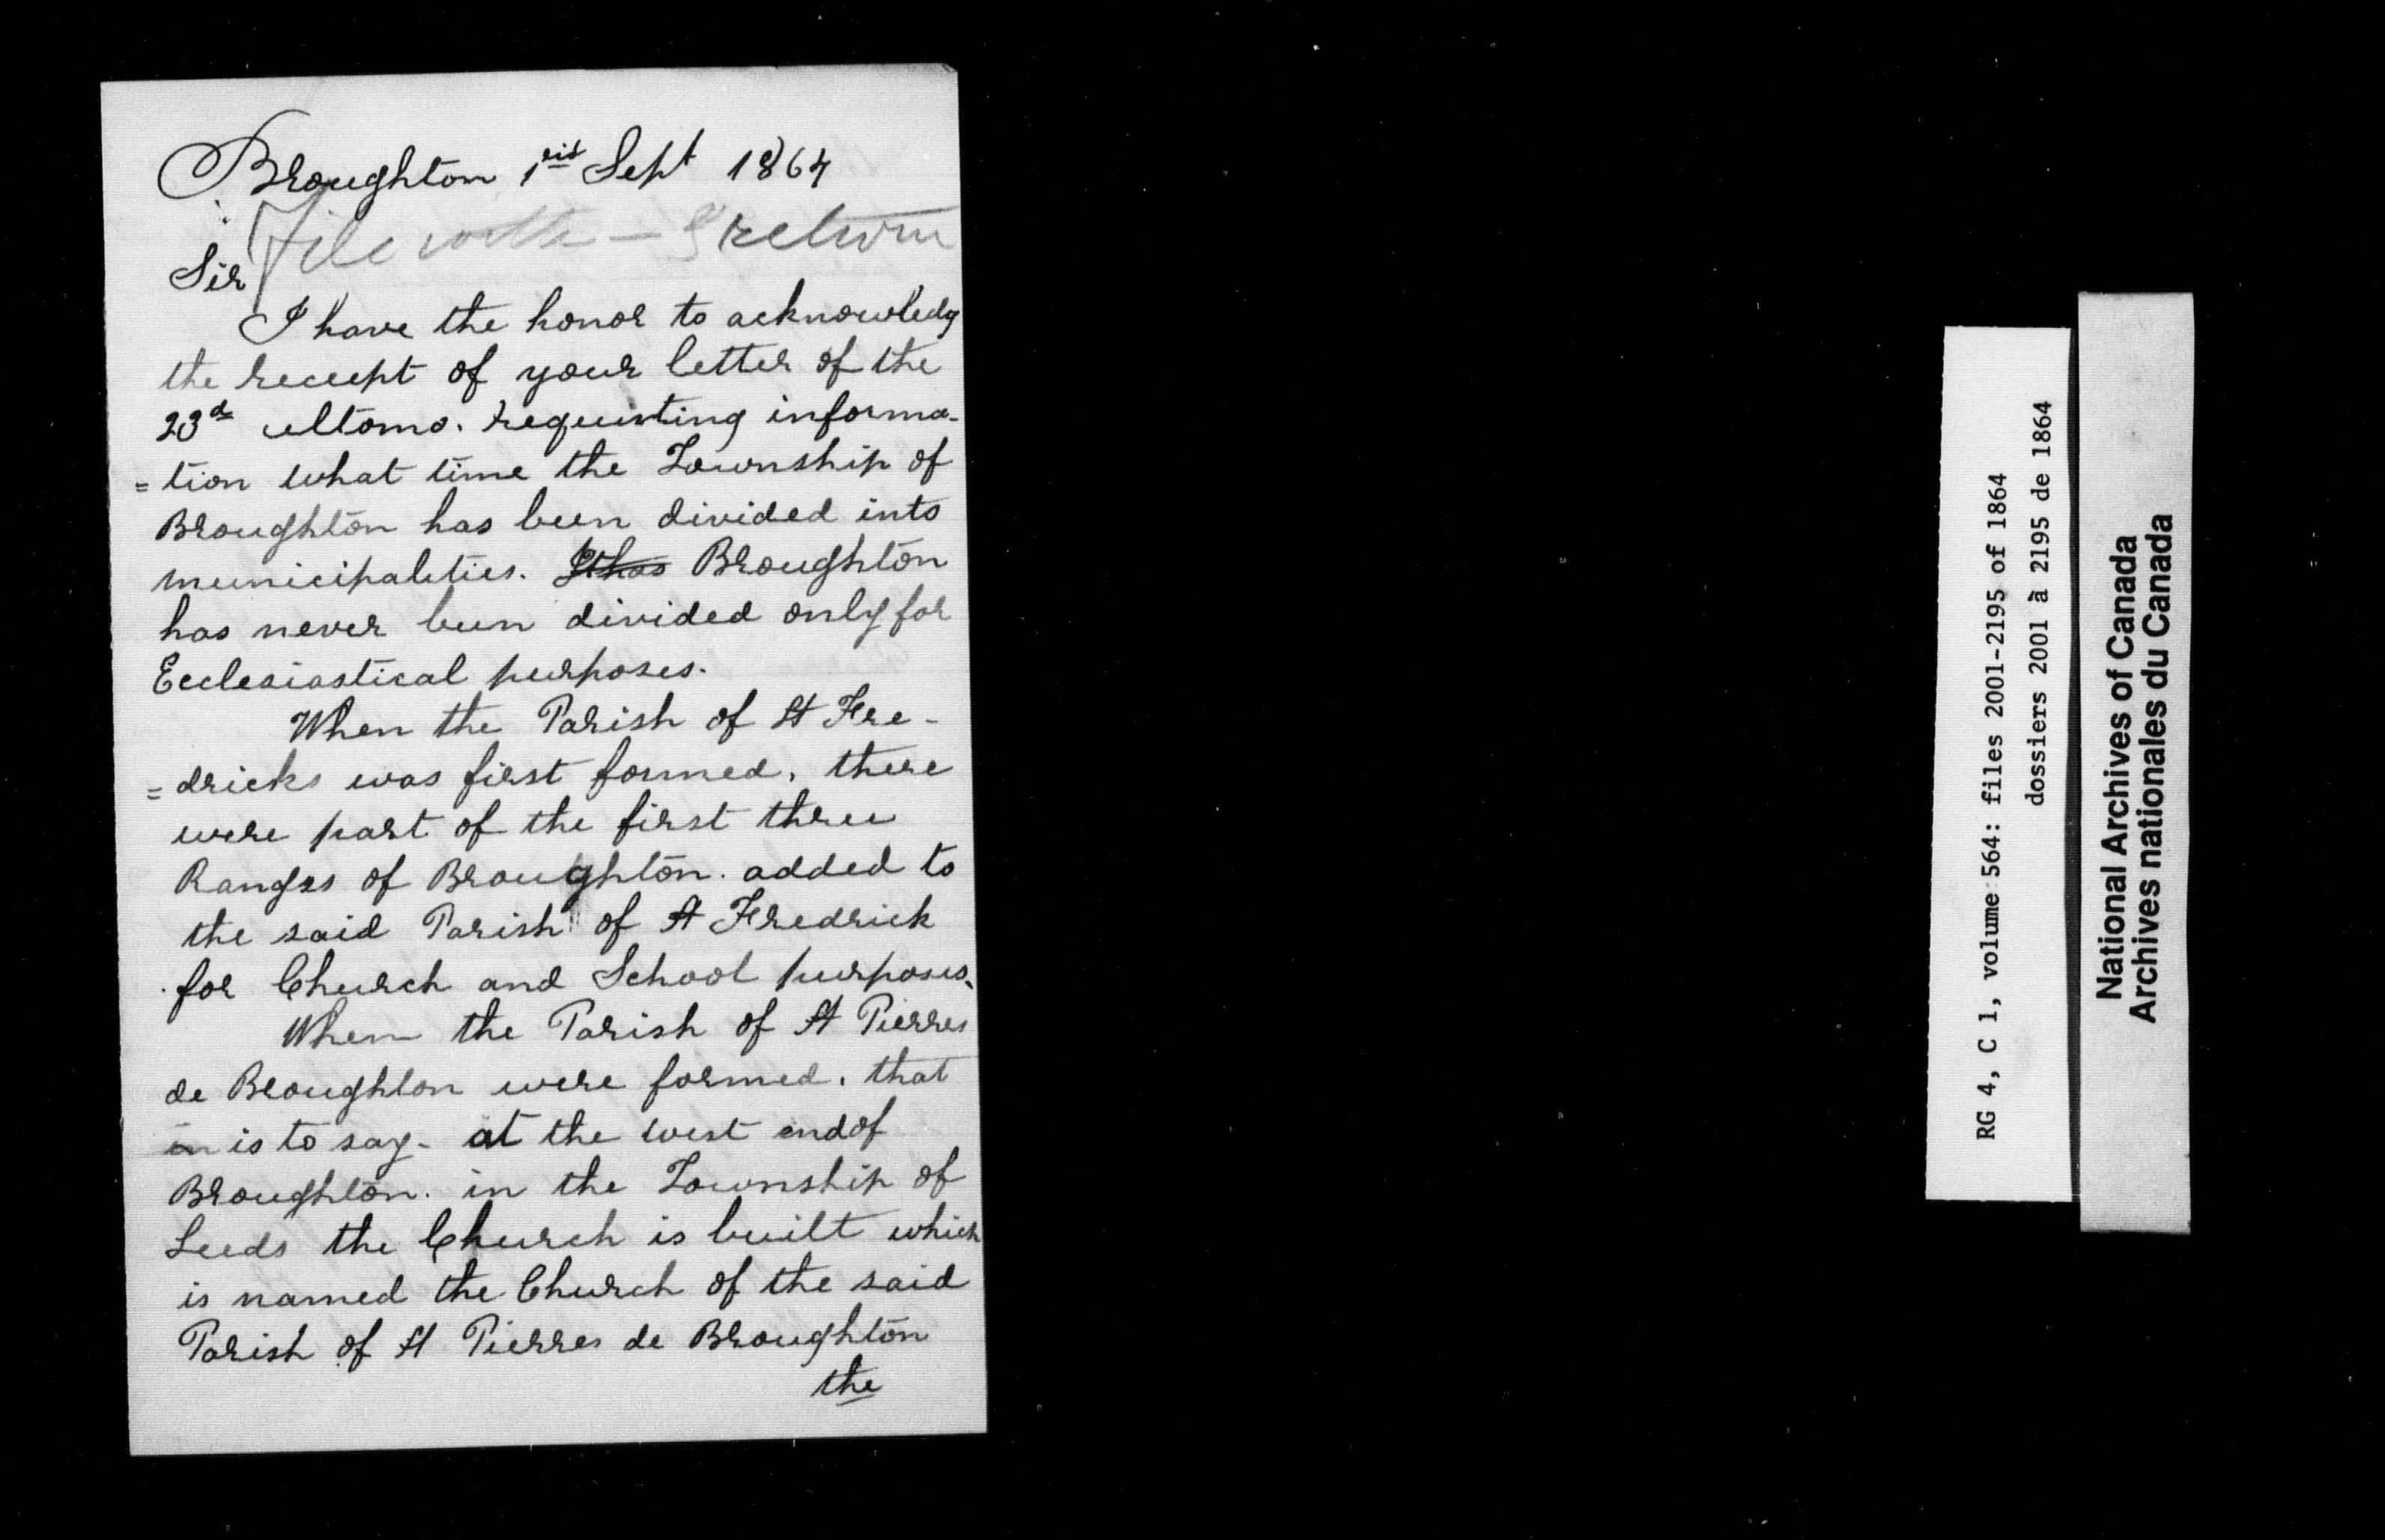 Broughton 1rst Sept 1864
File with — return
Sir
I have the honor to acknowledg
the receept of your letter of the
23d ultomo. requesting informa-
=tion what time the Township of
Broughton has been divided into
municipalities. It has Broughton
has never been divided only for
Ecclesiastical purposes.
When the Parish of St Fre-
=dricks was first formed, there
were part of the first three
Ranges of Broughton. added to
the said Parish of St Fredrick
for Church and School purposes.
When the Parish of St Pierres
de Broughton were formed, that
in is to say - at the west end of
Broughton. in the Township of
Leeds the Church is built which
is named the Church of the said
Parish of St Pierres de Broughton
the
RG 4, C 1, volume 564: files 2001-2195 of 1864
dossiers 2001 à 2195 de 1864
National Archives of Canada
Archives nationales du Canada